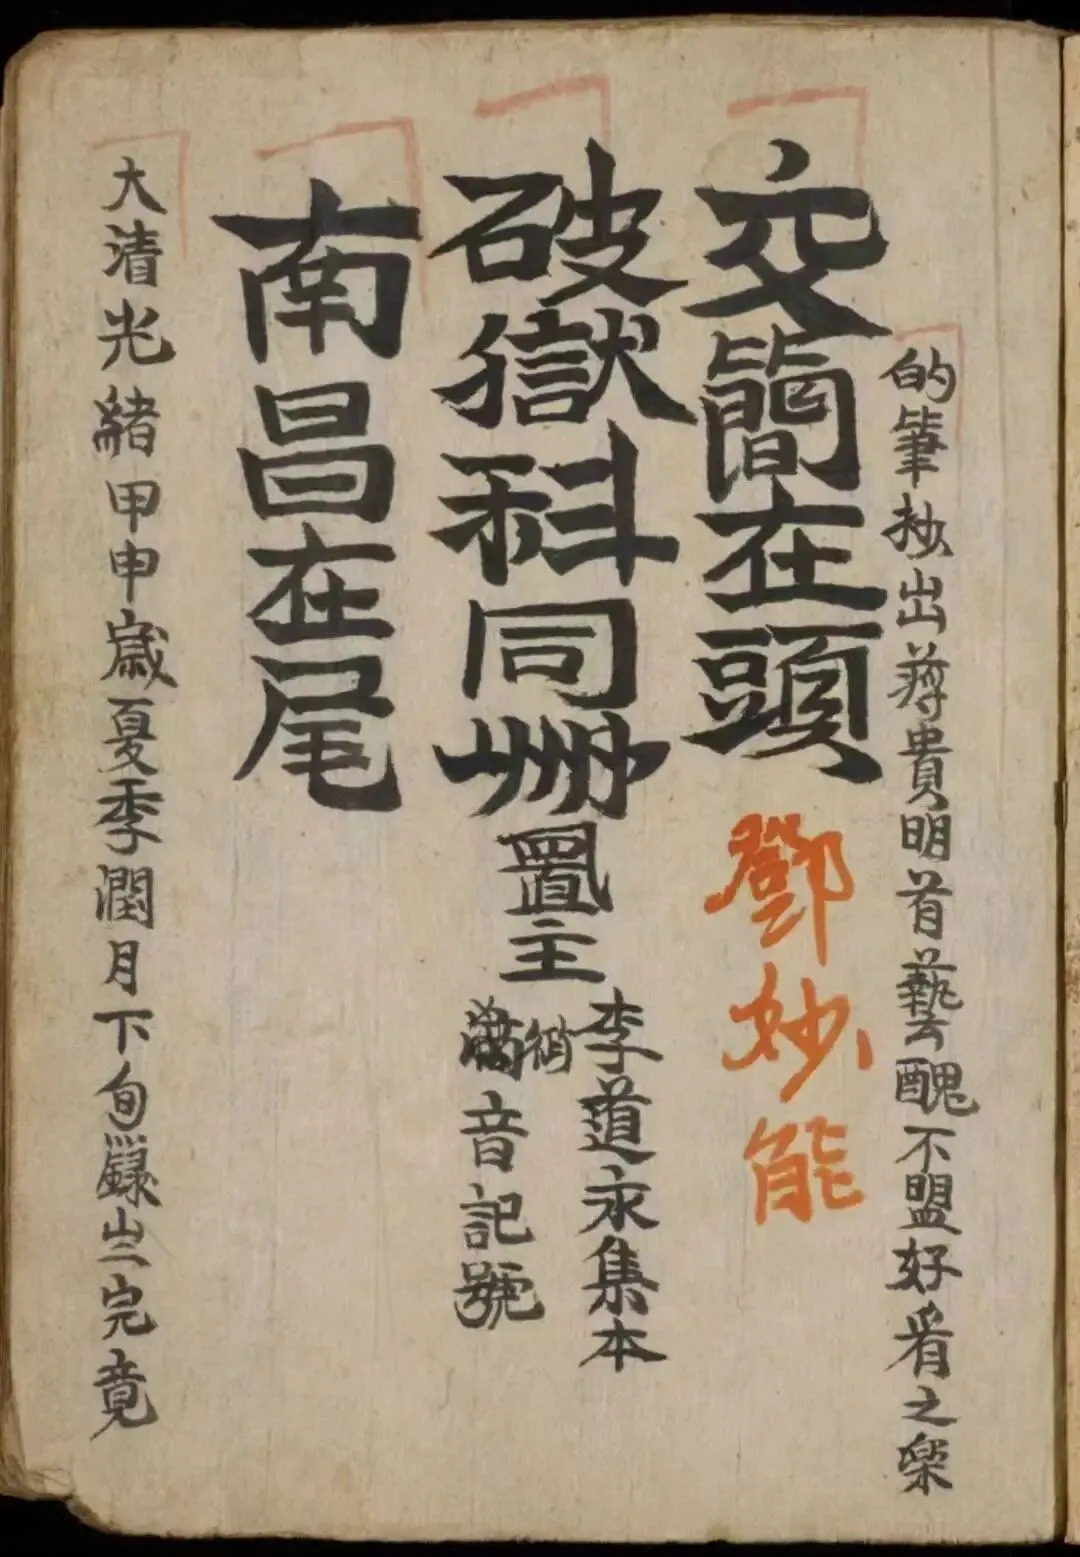 的筆抄出蓦貴明首藝醜不盟好看之樂
交簡在頭
鄧妙能
破獄科同卌置主
李道永集本
音記號
南昌在尾
大清光緒甲申歲夏季潤月下旬錄出完竟